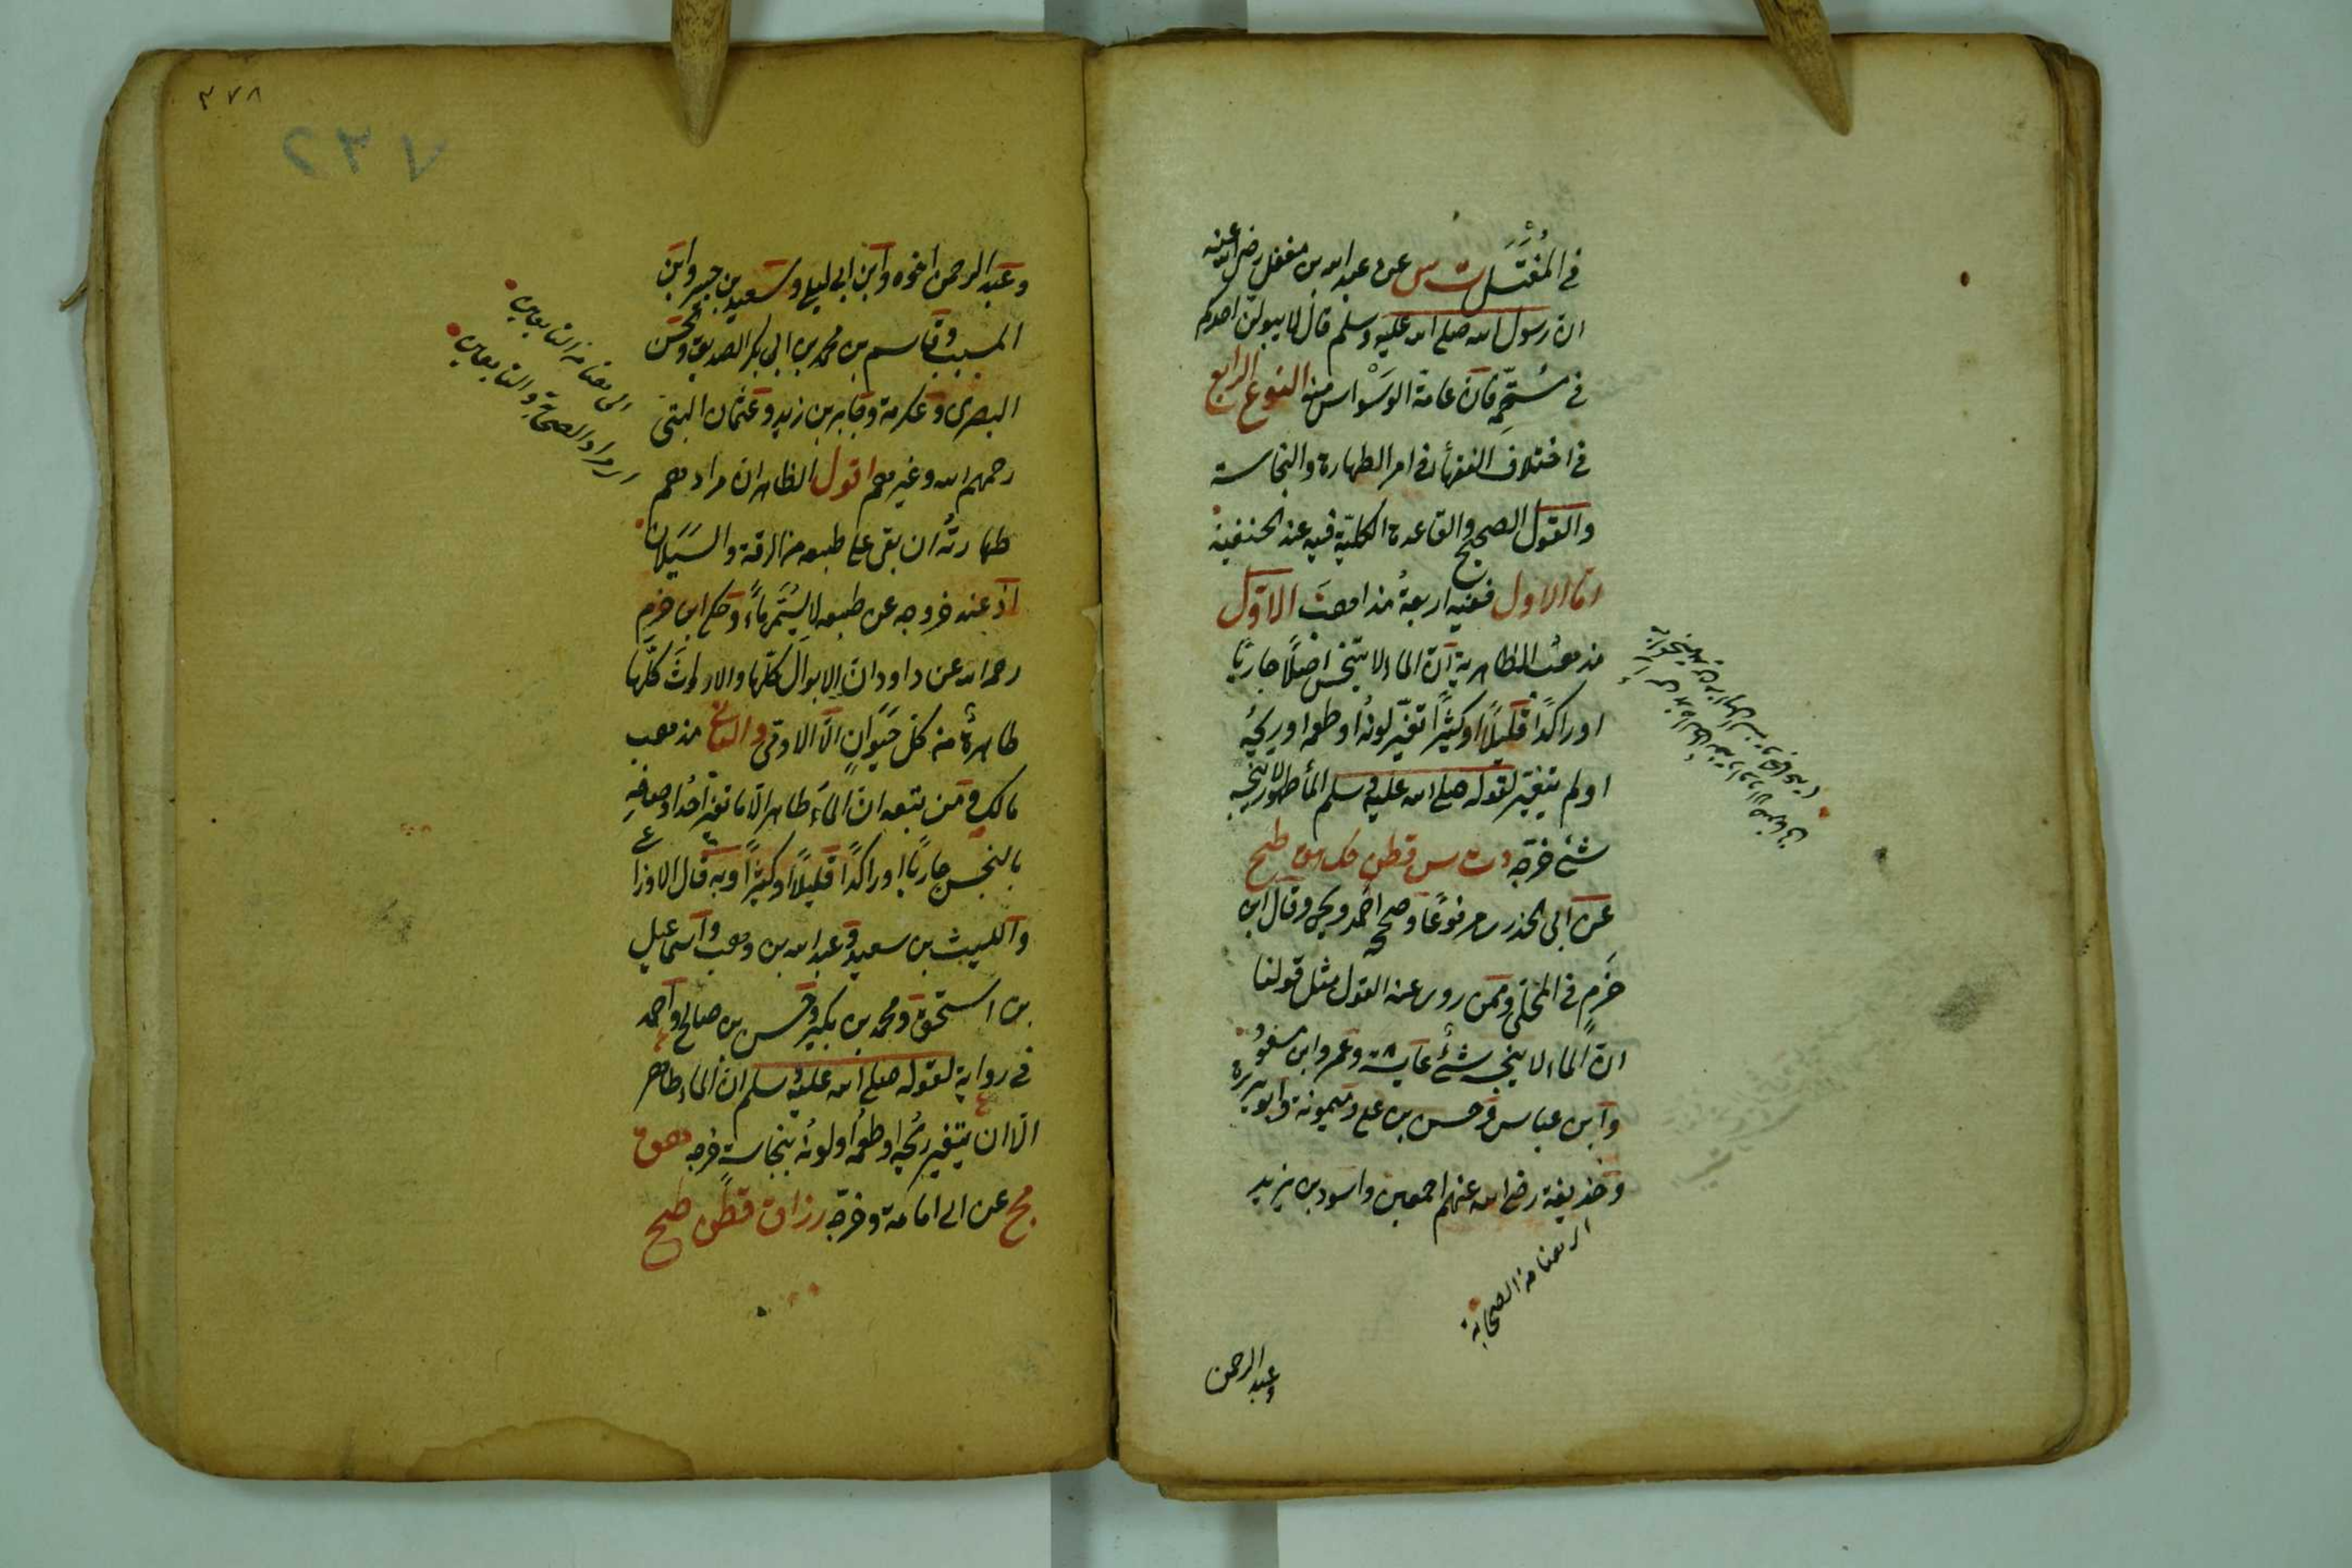 في المُغْتَسَل ت س عن عبد الله بن مغفل رضي الله عنه
ان رسول الله صلى الله عليه وسلم قال لا يبولن احدكم
في مستحمه فان عامة الوَسْواس منه النوع الرابع
في اختلاف الفقهاء في امر الطهارة والنجاسة
والقول الصحيح والقاعدة الكلية فيه عند الحنفية
اما الاول ففيه اربعة مذاهب الاول
مذهب الظاهرية ان الماء لا يتنجس اصلًا جاريًا
او راكدًا قليلًا او كثيرًا تغير لونه او طعمه او ريحه
او لم يتغير لقوله صلى الله عليه وسلم الماء طهور لا ينجسه
شئ خرجه د ت س قطن حك هق طح
عن ابي الخدري مرفوعًا وصححه احمد ويحيى وقال ابن
حزم في المحلى وممن روى عنه القول مثل قولنا
ان الماء لا ينجسه شئ عايشة وعمر وابن مسعود
وابن عباس وحسن بن علي وميمونة وابو هريرة
وحذيفة رضي الله عنهم اجمعين واسود بن يزيد
الى هنا من الصحابة
وعبد الرحمن
٣٧٨
٢٣٧
وعبد الرحمن اخوه وابن ابي ليلى وسعيد بن جبير وابن
المسيب وقاسم بن محمد بن ابي بكر الصديق والحسن
البصري وعكرمة وجابر بن زيد وعثمان البتي
رحمهم الله وغيرهم اقول الظاهر ان مرادهم
طهارته ان بقي على طبعه من الرقة والسَيَلان
اذ عند خروجه عن طبعه لا يسمى ماءً وحكى ابن حزم
رحمه الله عن داود ان الابوال كلها والارواث كلها
طاهرة من كل حيوان الا الادمي والثاني مذهب
مالك ومن تبعه ان الماء طاهر الا ما تغير احد اوصافه
بالنجس جاريًا او راكدًا قليلًا او كثيرًا وبه قال الاوزاعي
والليث بن سعد وعبد الله بن وهب واسماعيل
بن اسحق ومحمد بن بكير وحسن بن صالح واحمد
في رواية لقوله صلى الله عليه وسلم ان الماء طاهر
الا ان يتغير ريحه او طعمه او لونه بنجاسة خرجه هق
مج عن ابي امامة وخرجه رزاق قطن طح
الى هنا من التابعين
اي مراد الصحابة والتابعين